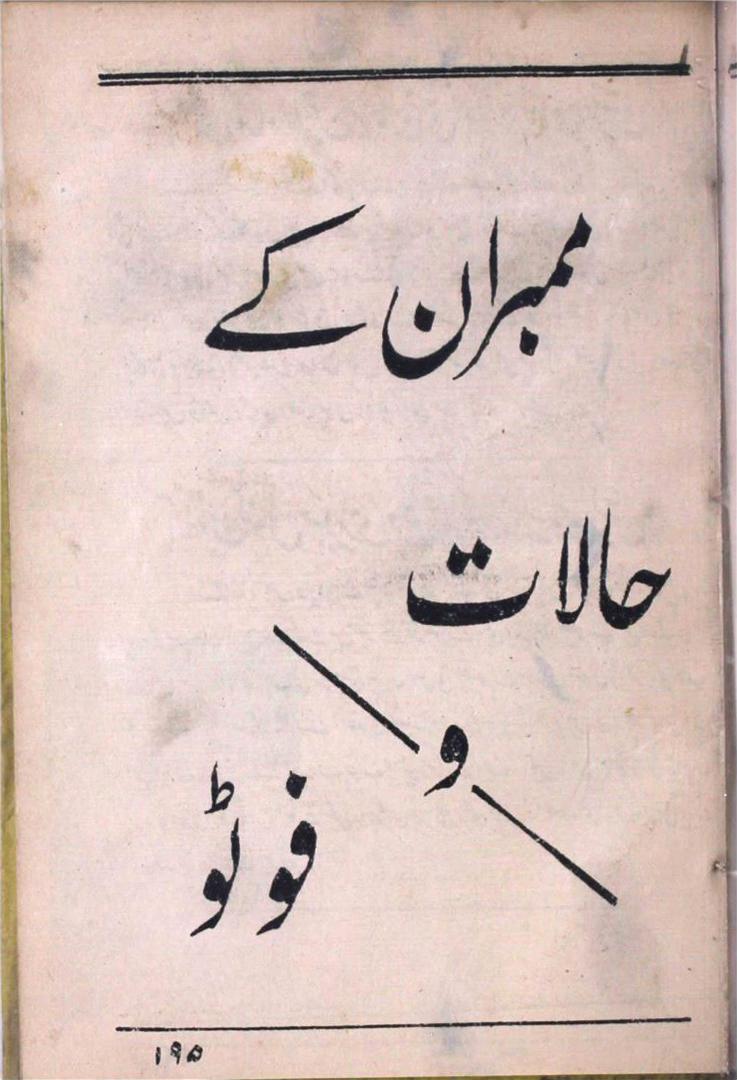 ممبران کے
حالات
و
فوٹو
۱۹۵